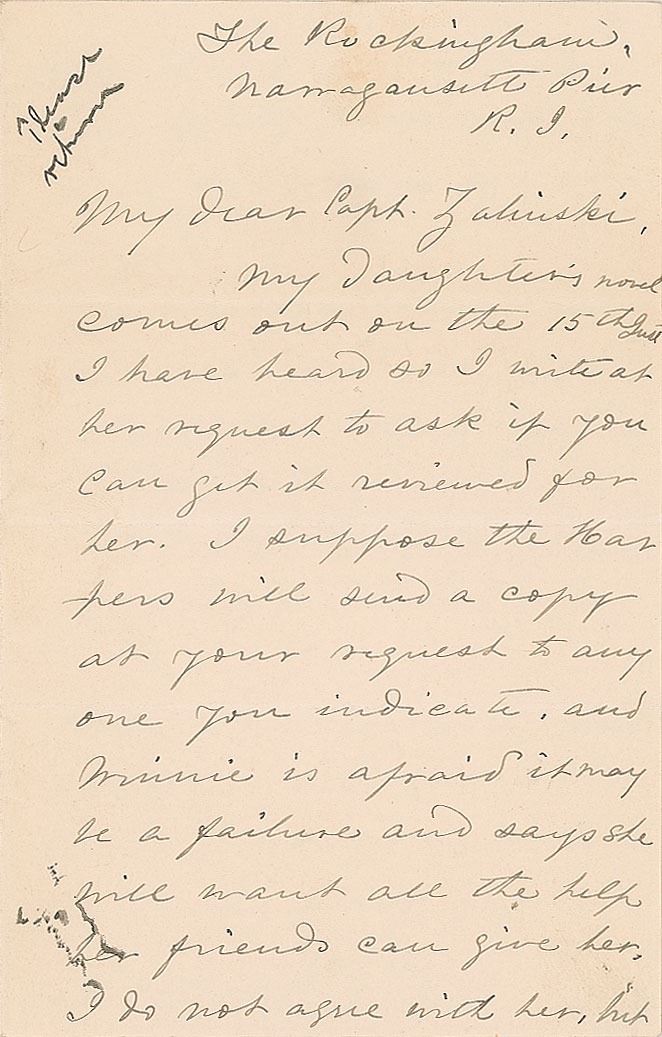 Please
return
The Rockingham,
Narragansett Pier
R. I.
My dear Capt. Zalinski,
My daughter's novel
comes out on the 15th Inst
I have heard so I write at
her request to ask if you
can get it reviewed for
her. I suppose the Har
pers will send a copy
at your request to any
one you indicate, and
Winnie is afraid it may
be a failure and says she
will want all the help
her friends can give her,
I do not agree with her, but